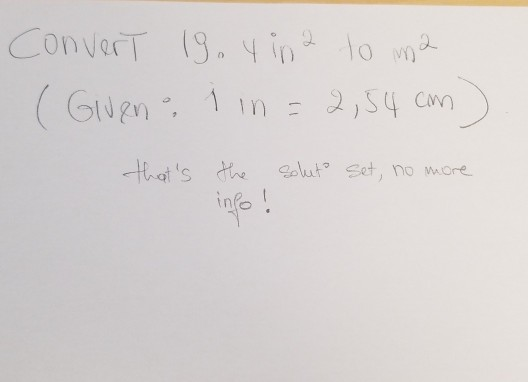 Convert 19.4 in² to m²
(Given: 1 in = 2,54 cm)
that's the solut° set, no more
info!